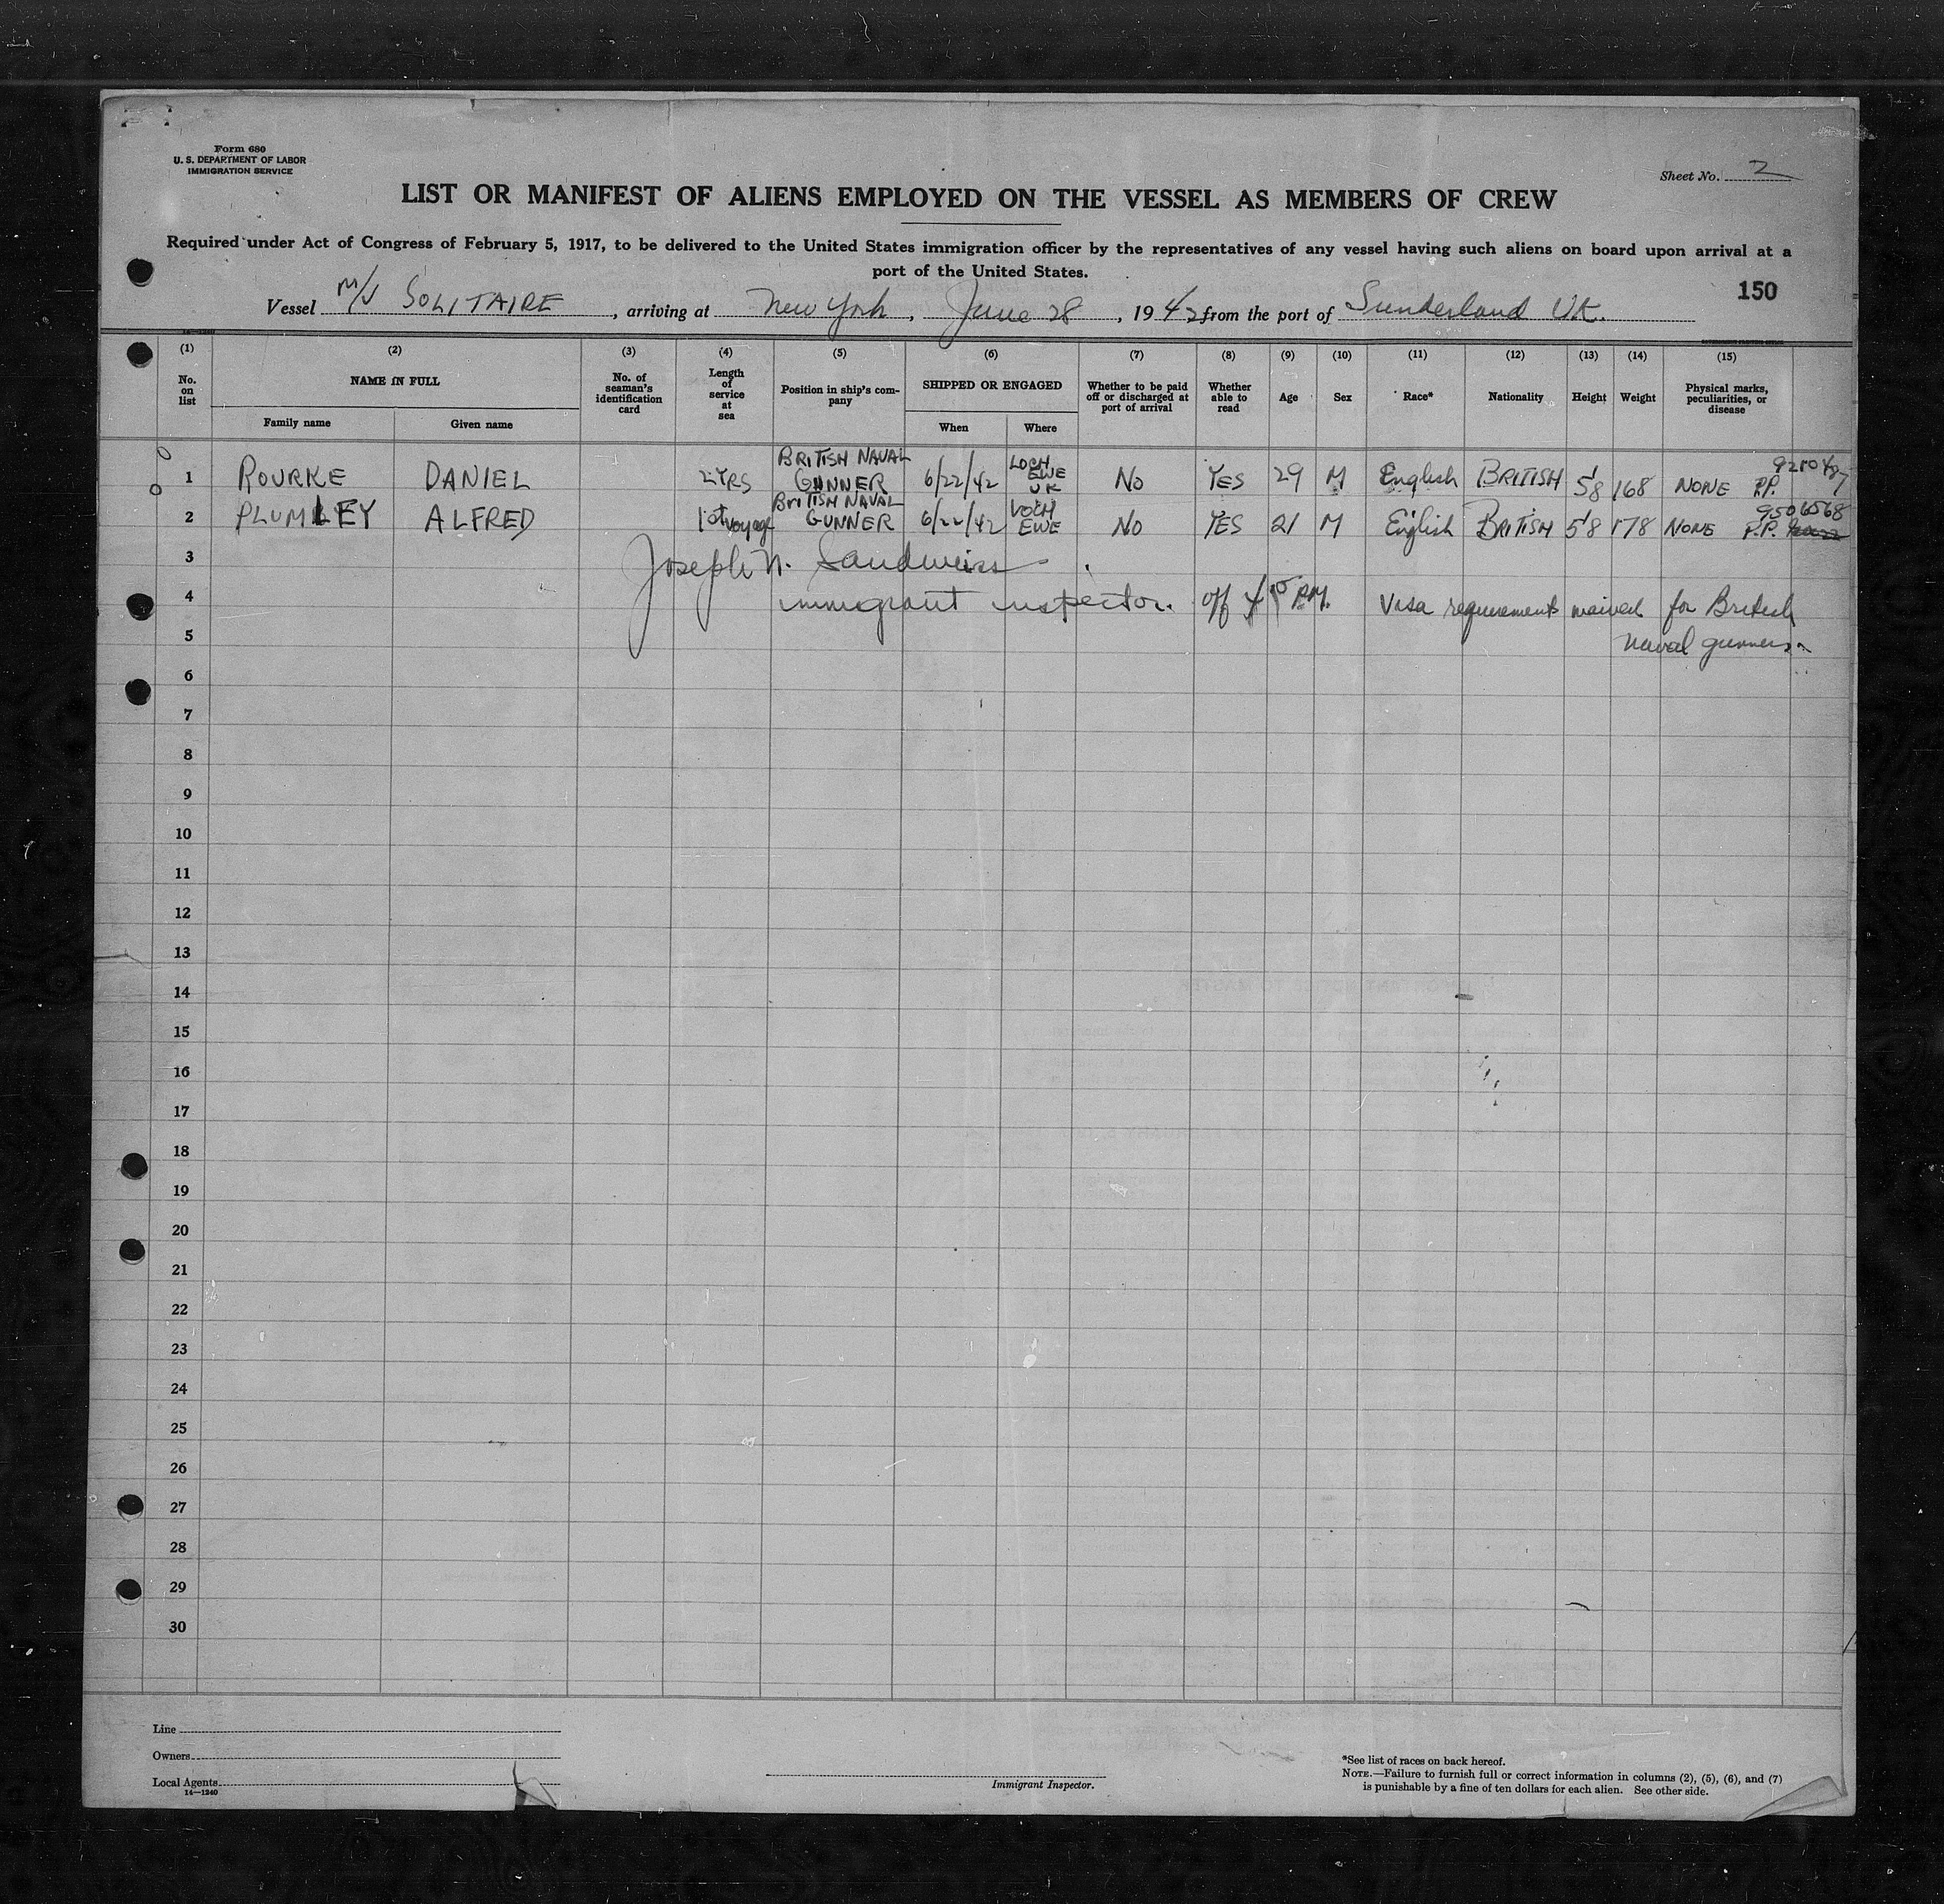 Form 680
U. S. DEPARTMENT OF LABOR
IMMIGRATION SERVICE
Sheet No. 2
LIST OR MANIFEST OF ALIENS EMPLOYED ON THE VESSEL AS MEMBERS OF CREW
Required under Act of Congress of February 5, 1917, to be delivered to the United States immigration officer by the representatives of any vessel having such aliens on board upon arrival at a
port of the United States.
150
Vessel M/S SOLITAIRE, arriving at New York, June 28, 1942 from the port of Sunderland UK.
(1) (2) (3) (4) (5) (6) (7) (8) (9) (10) (11) (12) (13) (14) (15)
No. on list NAME IN FULL No. of seaman's identification card Length of service at sea Position in ship's company SHIPPED OR ENGAGED Whether to be paid off or discharged at port of arrival Whether able to read Age Sex Race* Nationality Height Weight Physical marks, peculiarities, or disease
Family name Given name When Where
1 ROURKE DANIEL 2 YRS BRITISH NAVAL GUNNER 6/22/42 LOCH EWE UK No YES 29 M English BRITISH 5'8 168 NONE P.P.
2 PLUMLEY ALFRED 1st voyage BRITISH NAVAL GUNNER 6/22/42 LOCH EWE No YES 21 M English BRITISH 5'8 178 NONE P.P. 9506568
3 Joseph N. Sandweiss
4 immigrant inspector. off PM. Visa requirements waived for British
5 naval gunners
6
7
8
9
10
11
12
13
14
15
16
17
18
19
20
21
22
23
24
25
26
27
28
29
30
Line
Owners
Local Agents
14—1240
Immigrant Inspector.
*See list of races on back hereof.
NOTE.—Failure to furnish full or correct information in columns (2), (5), (6), and (7)
is punishable by a fine of ten dollars for each alien. See other side.